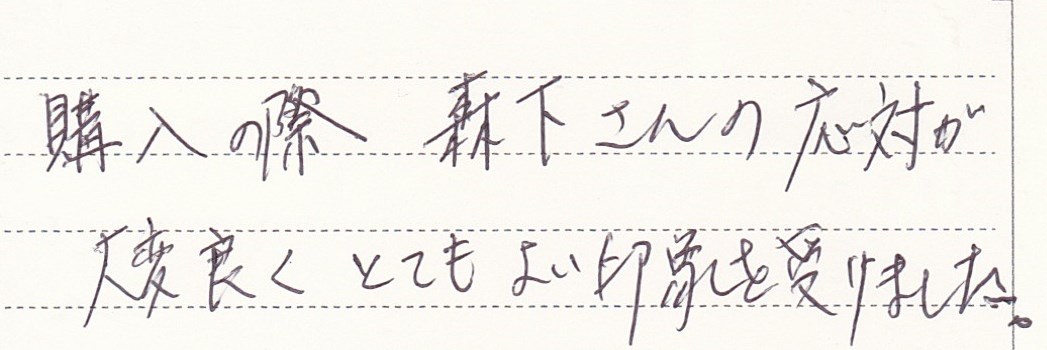 購入の際 森下さんの応対が
大変良く とても よい印象を受けました。